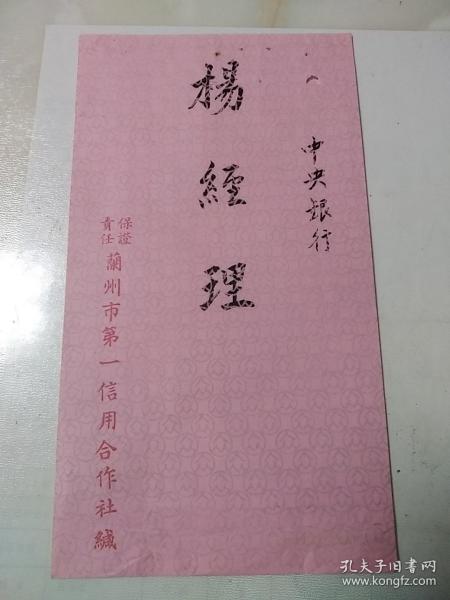 中央銀行
楊經理
保證
責任
蘭州市第一信用合作社緘
孔夫子旧书网
www.kongfz.com